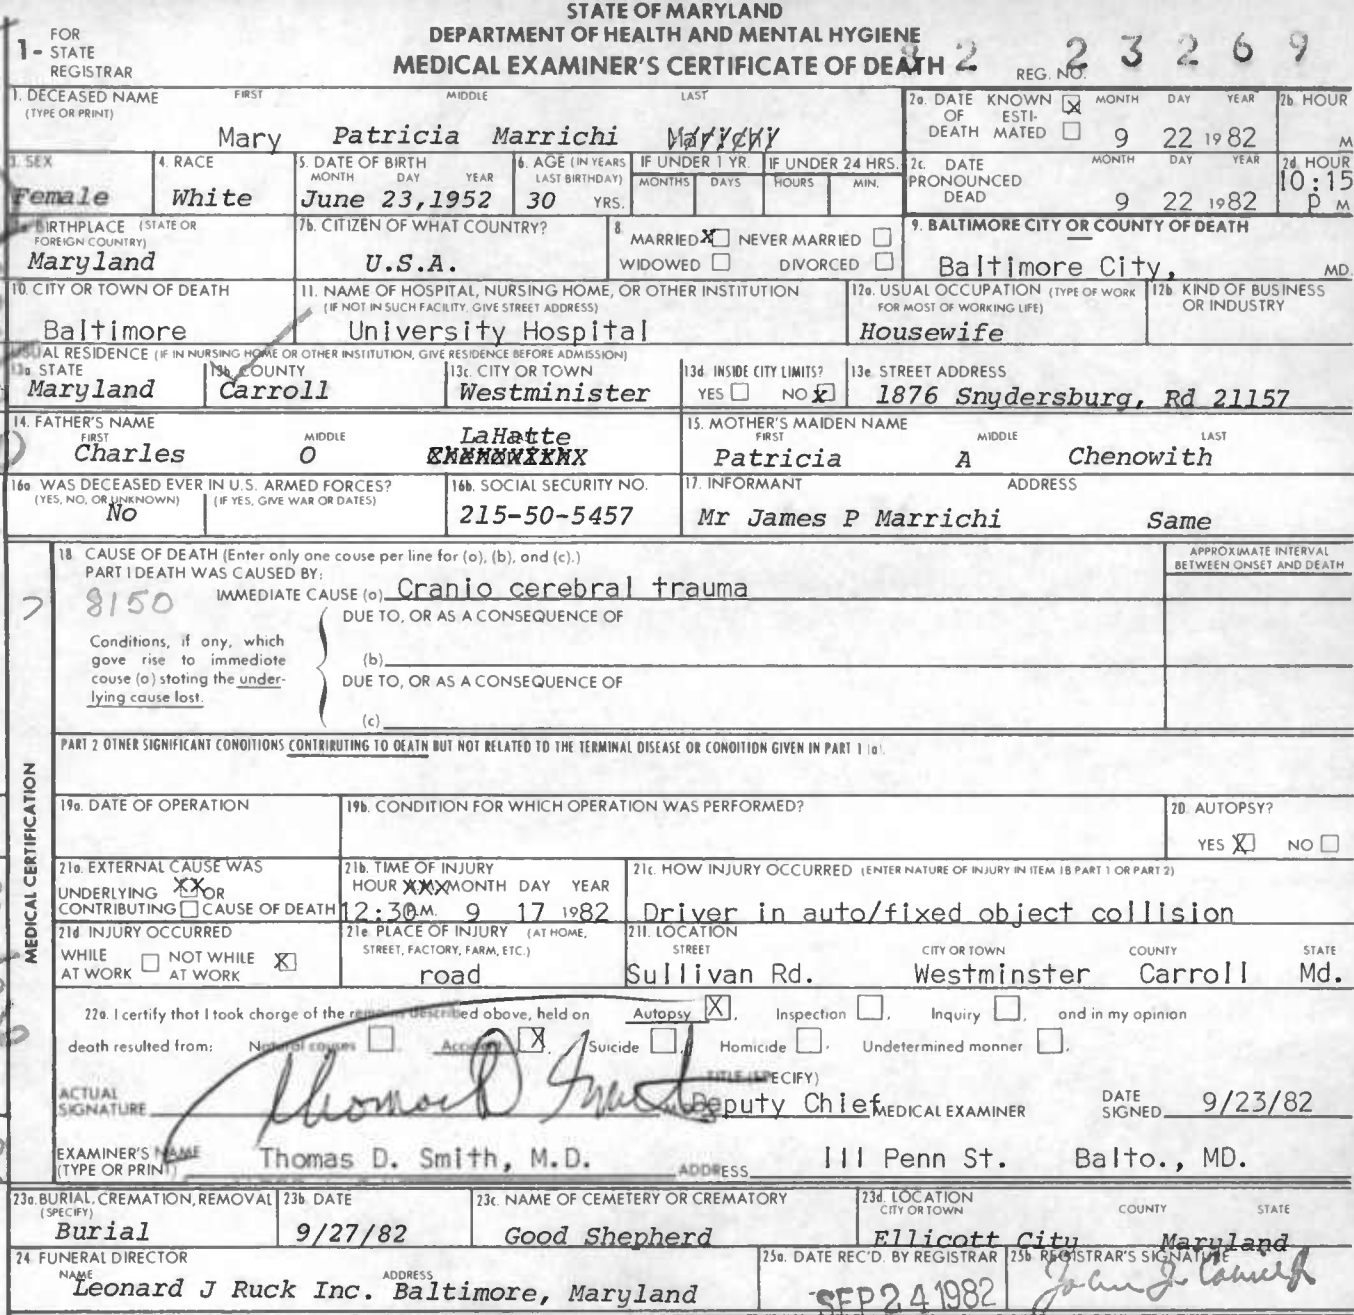 STATE OF MARYLAND
DEPARTMENT OF HEALTH AND MENTAL HYGIENE
MEDICAL EXAMINER'S CERTIFICATE OF DEATH
1- FOR STATE REGISTRAR
REG. NO. 82 23269
1. DECEASED NAME FIRST MIDDLE LAST
(TYPE OR PRINT)
Mary Patricia Marrichi
2a. DATE OF DEATH KNOWN X ESTIMATED MONTH DAY YEAR
9 22 1982
2b. HOUR
M
3. SEX
Female
4. RACE
White
5. DATE OF BIRTH
MONTH DAY YEAR
June 23,1952
6. AGE (IN YEARS LAST BIRTHDAY)
30 YRS.
IF UNDER 1 YR.
MONTHS DAYS
IF UNDER 24 HRS.
HOURS MIN.
2c. DATE PRONOUNCED DEAD
MONTH DAY YEAR
9 22 1982
2d. HOUR
10:15
P M
BIRTHPLACE (STATE OR FOREIGN COUNTRY)
Maryland
7b. CITIZEN OF WHAT COUNTRY?
U.S.A.
8. MARRIED X NEVER MARRIED
WIDOWED DIVORCED
9. BALTIMORE CITY OR COUNTY OF DEATH
Baltimore City, MD.
10. CITY OR TOWN OF DEATH
Baltimore
11. NAME OF HOSPITAL, NURSING HOME, OR OTHER INSTITUTION
(IF NOT IN SUCH FACILITY, GIVE STREET ADDRESS)
University Hospital
12a. USUAL OCCUPATION (TYPE OF WORK FOR MOST OF WORKING LIFE)
Housewife
12b. KIND OF BUSINESS OR INDUSTRY
USUAL RESIDENCE (IF IN NURSING HOME OR OTHER INSTITUTION, GIVE RESIDENCE BEFORE ADMISSION)
13a. STATE
Maryland
13b. COUNTY
Carroll
13c. CITY OR TOWN
Westminister
13d. INSIDE CITY LIMITS?
YES NO X
13e. STREET ADDRESS
1876 Snydersburg, Rd 21157
14. FATHER'S NAME
FIRST MIDDLE
Charles O LaHatte
15. MOTHER'S MAIDEN NAME
FIRST MIDDLE LAST
Patricia A Chenowith
16a. WAS DECEASED EVER IN U.S. ARMED FORCES?
(YES, NO, OR UNKNOWN) (IF YES, GIVE WAR OR DATES)
No
16b. SOCIAL SECURITY NO.
215-50-5457
17. INFORMANT ADDRESS
Mr James P Marrichi Same
18. CAUSE OF DEATH (Enter only one couse per line for (a), (b), and (c).)
PART I DEATH WAS CAUSED BY:
APPROXIMATE INTERVAL BETWEEN ONSET AND DEATH
8150
IMMEDIATE CAUSE (a) Cranio cerebral trauma
DUE TO, OR AS A CONSEQUENCE OF
Conditions, if any, which gove rise to immediate couse (a) stoting the underlying cause lost.
(b)
DUE TO, OR AS A CONSEQUENCE OF
(c)
PART 2 OTHER SIGNIFICANT CONDITIONS CONTRIBUTING TO DEATH BUT NOT RELATED TO THE TERMINAL DISEASE OR CONDITION GIVEN IN PART 1 (a).
MEDICAL CERTIFICATION
19a. DATE OF OPERATION
19b. CONDITION FOR WHICH OPERATION WAS PERFORMED?
20. AUTOPSY?
YES X NO
21a. EXTERNAL CAUSE WAS
UNDERLYING XX OR
CONTRIBUTING CAUSE OF DEATH
21b. TIME OF INJURY
HOUR XXX MONTH DAY YEAR
12:30 A.M. 9 17 1982
21c. HOW INJURY OCCURRED (ENTER NATURE OF INJURY IN ITEM 18 PART 1 OR PART 2)
Driver in auto/fixed object collision
21d. INJURY OCCURRED
WHILE AT WORK NOT WHILE AT WORK X
21e. PLACE OF INJURY (AT HOME, STREET, FACTORY, FARM, ETC.)
road
21f. LOCATION
STREET CITY OR TOWN COUNTY STATE
Sullivan Rd. Westminster Carroll Md.
22a. I certify that I took charge of the remains described above, held on Autopsy X, Inspection, Inquiry, and in my opinion
death resulted from: Natural causes, Accident X, Suicide, Homicide, Undetermined manner.
ACTUAL SIGNATURE Thomas D Smith
TITLE (SPECIFY)
Deputy Chief MEDICAL EXAMINER
DATE SIGNED 9/23/82
EXAMINER'S NAME (TYPE OR PRINT) Thomas D. Smith, M.D.
ADDRESS 111 Penn St. Balto., MD.
23a. BURIAL, CREMATION, REMOVAL (SPECIFY)
Burial
23b. DATE
9/27/82
23c. NAME OF CEMETERY OR CREMATORY
Good Shepherd
23d. LOCATION
CITY OR TOWN COUNTY STATE
Ellicott City Maryland
24. FUNERAL DIRECTOR
NAME ADDRESS
Leonard J Ruck Inc. Baltimore, Maryland
25a. DATE REC'D. BY REGISTRAR
SEP 24 1982
25b. REGISTRAR'S SIGNATURE